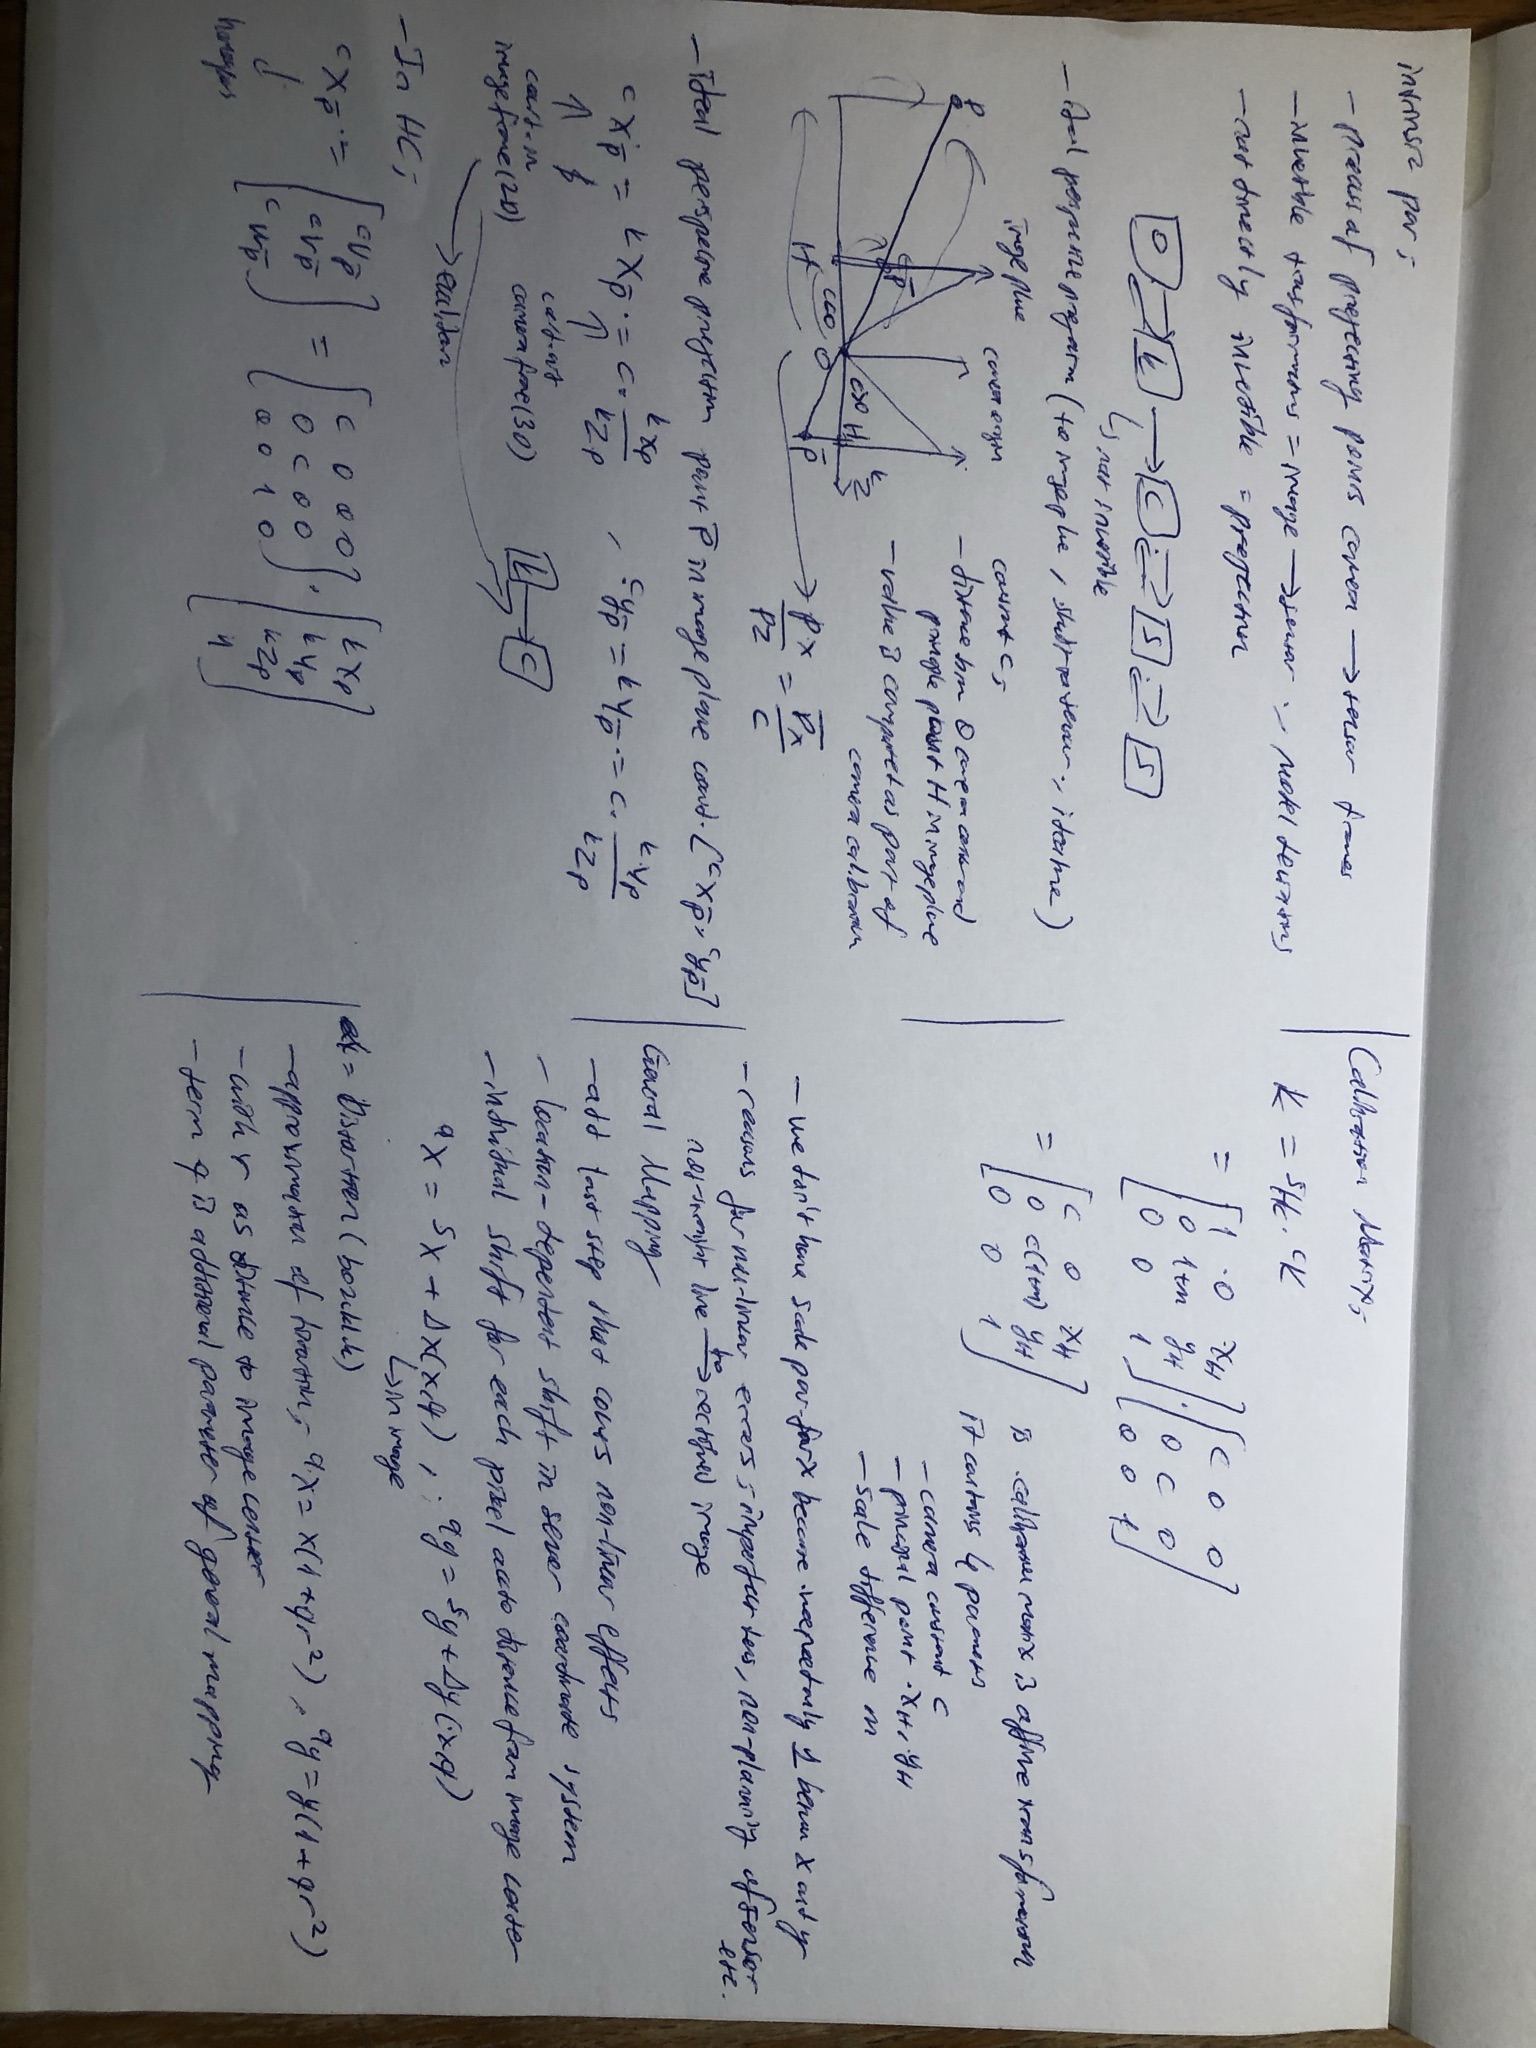 intrinsic par:
- process of projecting points camera → sensor frames
- invertible transforms = image → sensor, model deviations
- not directly invertible = projection
[O] → [k] → [c] → [s] → [s]
↳ not invertible
- ideal perspective projection (to image plane,
image plane
camera origin
P
P̄
H
c<0
O
c>0
H
kZ
P̄
constant c:
- distance from O camera center and
principle point H in image plane
- value is computed as part of
camera calibration
→ px/pz = p̄x/c
- ideal perspective projection point P̄ in image plane coord. [ᶜxp̄, ᶜyp̄]
ᶜxp̄ = ᵏxp̄ := c · ᵏxp/ᵏzp , ᶜyp̄ = ᵏyp̄ := c · ᵏyp/ᵏzp
coord. in
image frame (2D)
camera frame (3D)
[k] → [c]
- In HC:
ᶜxp̄ := [ᶜUp̄ ᶜVp̄ ᶜWp̄] = [c 0 0 0
0 c 0 0
0 0 1 0] · [ᵏxp ᵏyp ᵏzp 1]
Calibration Matrix:
K = ˢHc · ᶜK
= [1 0 xH
0 1+m yH
0 0 1] · [c 0 0
0 c 0
0 0 1]
= [c 0 xH
0 c(1+m) yH
0 0 1] is calibration matrix is affine transformation
it contains 4 parameters
- camera constant c
- principal point xH, yH
- scale difference m
- we don't have scale par. for x because
- reasons for non-linear errors: imperfect lens, non-planarity of sensor etc.
non-straight line →to rectified image
General Mapping
- add last step that covers non-linear effects
- location-dependent shift in sensor coordinate system
- individual shift for each pixel acc to distance from image center
ᵃx = ˢx + Δx(x,q), ᵃy = ˢy + Δy(x,q)
↳ in image
= Distortion (barrel)
- approximation of: ᵃx = x(1+qr²), ᵃy = y(1+qr²)
- with r as distance to image center
- term q is additional parameter of general mapping